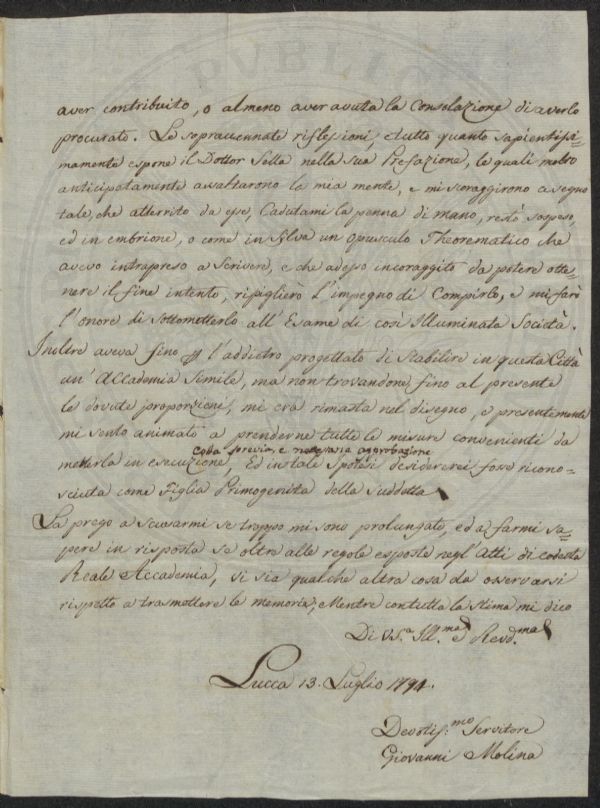 aver contribuito, o almeno aver avuta la Consolazione di averlo
procurato. Le sopraccennate riflessioni, e tutto quanto sapientissi-
mamente espone il Dottor Sella nella sua Prefazione, le quali molto
anticipatamente assaltarono la mia mente, e mi scoraggirono a segno
tale, che atterrito da esse, Cadutami la penna di mano, restò sospeso,
ed in embrione, o come in Sylva un opusculo Theorematico che
avevo intrapreso a Scrivere, e che adesso incoraggito da potere otte-
nere il fine intento, ripiglierò l'impegno di Compirlo, e mi farò
l'onore di Sottometterlo all'Esame di così Illuminata Società.
Inoltre aveva fino p l'addietro progettato di Stabilire in questa Città
un'Accademia Simile, ma non trovandone fino al presente
le dovute proporzioni, mi era rimasta nel disegno, e presentemente
mi sento animato a prenderne tutte le misure convenienti da
coda previa e necessaria approbazione
metterla in esecuzione, Ed in tale Ipotesi desidererei fosse ricono-
sciuta come Figlia Primogenita della suddetta
La prego a scusarmi se troppo mi sono prolungato, ed a farmi sa-
pere in risposta se oltre alle regole esposte negl'Atti di codesta
Reale Accademia, vi sia qualche altra cosa da osservarsi
rispetto a trasmettere la memoria, Mentre con tutta la stima mi dico
Di V.S.a Ill.ma e Revd.ma
Lucca 13. Luglio 1791.
Devotis.mo Servitore
Giovanni Molina
PVBLIC